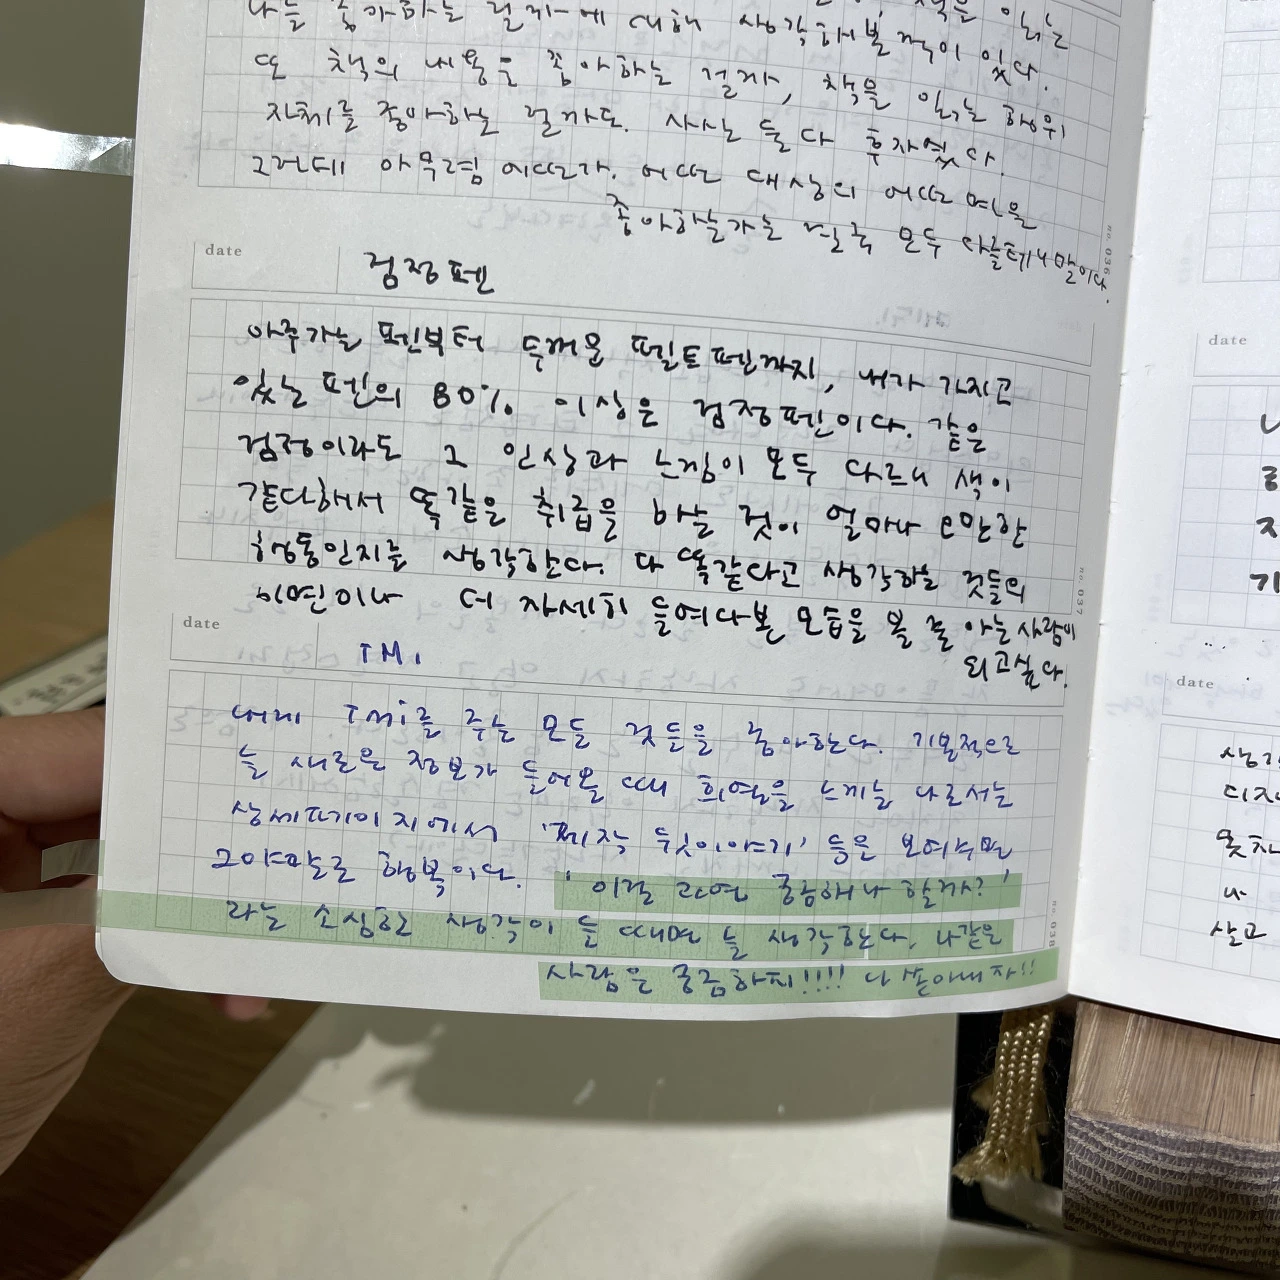 나를 좋아하는 걸까-에 대해 생각해볼 적이 있다.
또 책의 내용을 좋아하는 걸까, 책을 읽는 행위
자체를 좋아하는 걸까도. 사실은 둘 다 후자였다.
그런데 아무렴 어떠한가. 어떤 대상의 어떤 면을
좋아하는가는 모두 다를테니 말이다.
no. 036
date
검정 펜
아주 가는 펜부터 두꺼운 펠트펜까지, 내가 가지고
있는 펜의 80% 이상은 검정펜이다. 같은
검정이라도 그 인상과 느낌이 모두 다르니 색이
같다해서 똑같은 취급을 하는 것이 얼마나 오만한
행동인지를 생각한다. 다 똑같다고 생각하는 것들의
이면이나 더 자세히 들여다본 모습을 볼 줄 아는 사람이
되고싶다.
no. 037
date
TMI
내게 TMI를 주는 모든 것들을 좋아한다. 기본적으로
늘 새로운 정보가 들어올 때 희열을 느끼는 나로서는
상세페이지에서 '제작 뒷이야기' 등을 보여주면
그야말로 행복이다. '이걸 과연 궁금해나 할까?'
라는 소심한 생각이 들 때면 늘 생각한다, 나같은
사람은 궁금하지!!!! 다 쏟아내자!!
no. 038
date
date
생각
디자
못차
나
살고